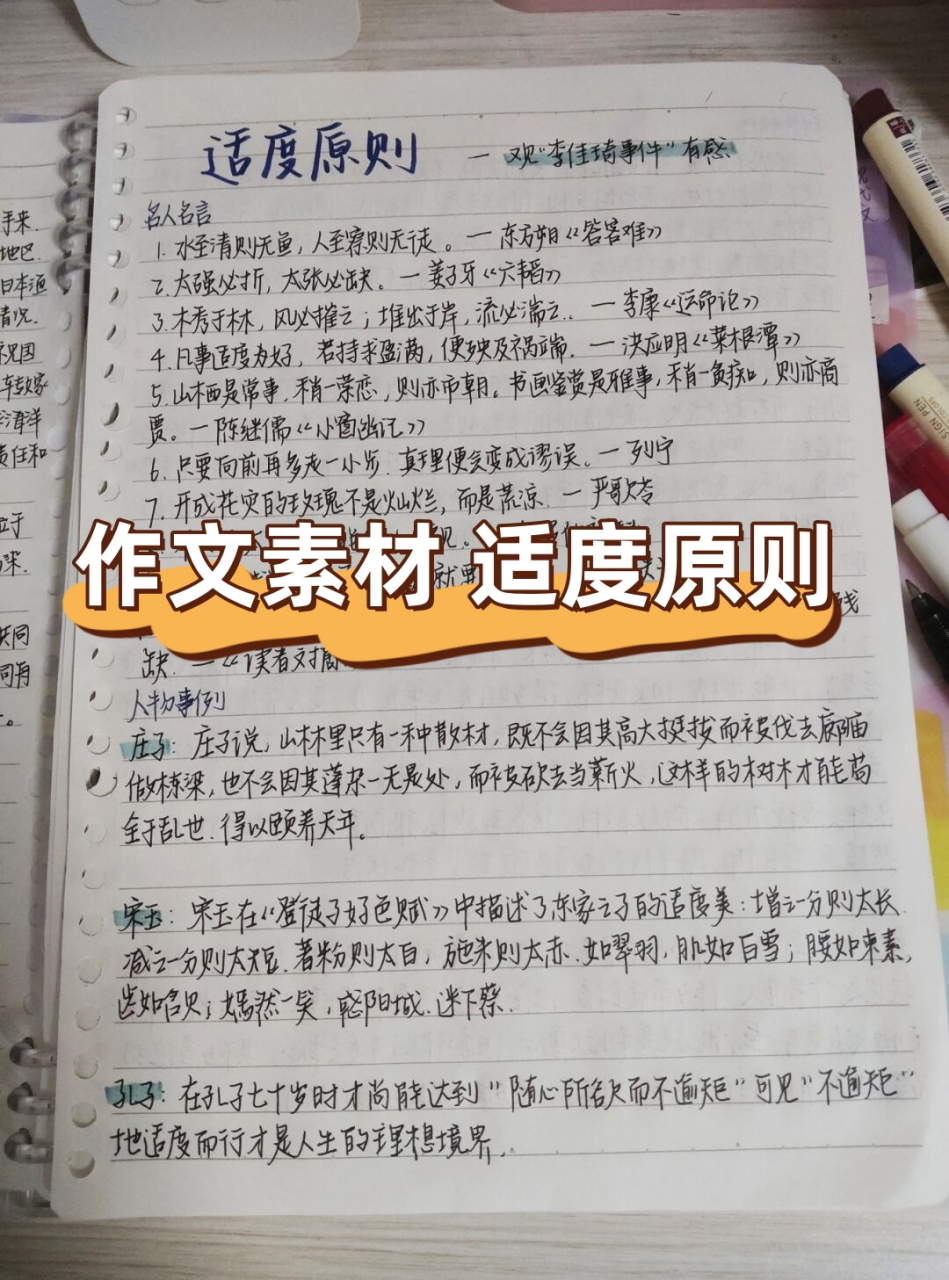 适度原则
— 观"李佳琦事件"有感
名人名言
1. 水至清则无鱼，人至察则无徒。— 东方朔《答客难》
2. 太强必折，太张必缺。— 姜子牙《六韬》
3. 木秀于林，风必摧之；堆出于岸，流必湍之. — 李康《运命论》
4. 凡事适度为好，若持求盈满，便殃及祸端. — 洪应明《菜根谭》
5. 山栖是常事，稍一萦恋，则亦市朝。书画鉴赏是雅事，稍一贪痴，则亦商
贾。— 陈继儒《小窗幽记》
6. 只要向前再多走一小步. 真理便会变成谬误。— 列宁
7. 开成花灾的玫瑰不是灿烂，而是荒凉. — 严歌苓
作文素材 适度原则
就要
残
缺. —《读者文摘
人物事例
庄子: 庄子说，山林里只有一种散材，既不会因其高大挺拔而被伐去廊庙
做栋梁，也不会因其蓬杂一无是处，而被砍去当薪火，这样的树木才能苟
全于乱世. 得以颐养天年。
宋玉: 宋玉在《登徒子好色赋》中描述了东家之子的适度美: 增之一分则太长.
减之一分则太短. 著粉则太白，施朱则太赤. 如翠羽，肌如白雪；腰如束素，
齿如含贝；嫣然一笑，惑阳城. 迷下蔡.
孔子: 在孔子七十岁时才尚能达到"随心所欲而不逾矩"可见"不逾矩"
地适度而行才是人生的理想境界.
手来.
地区.
日本渔
情况.
责任和
位于
共同